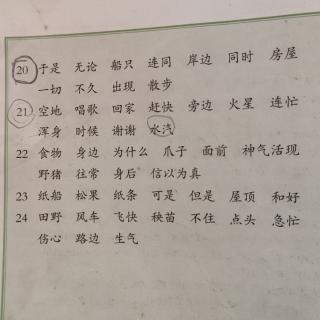 20 于是 无论 船只 连同 岸边 同时 房屋
一切 不久 出现 散步
21 空地 唱歌 回家 赶快 旁边 火星 连忙
浑身 时候 谢谢 水汽
22 食物 身边 为什么 爪子 面前 神气活现
野猪 往常 身后 信以为真
23 纸船 松果 纸条 可是 但是 屋顶 和好
24 田野 风车 飞快 秧苗 不住 点头 急忙
伤心 路边 生气